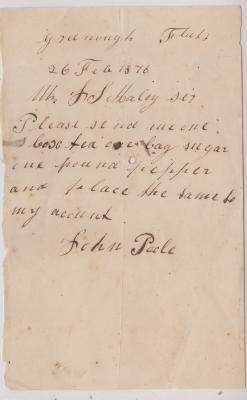 Greenough Flats
26 Feb 1878
Mr J S Maley sir
Please send me one
box tea one bag sugar
one pound pepper
and place the same to
my acount
John Poole